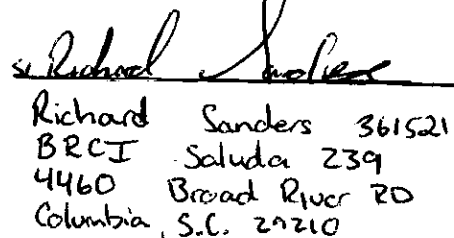 s/ Richard Sanders
Richard Sanders 361521
BRCI Saluda 239
4460 Broad River RD
Columbia, S.C. 29210